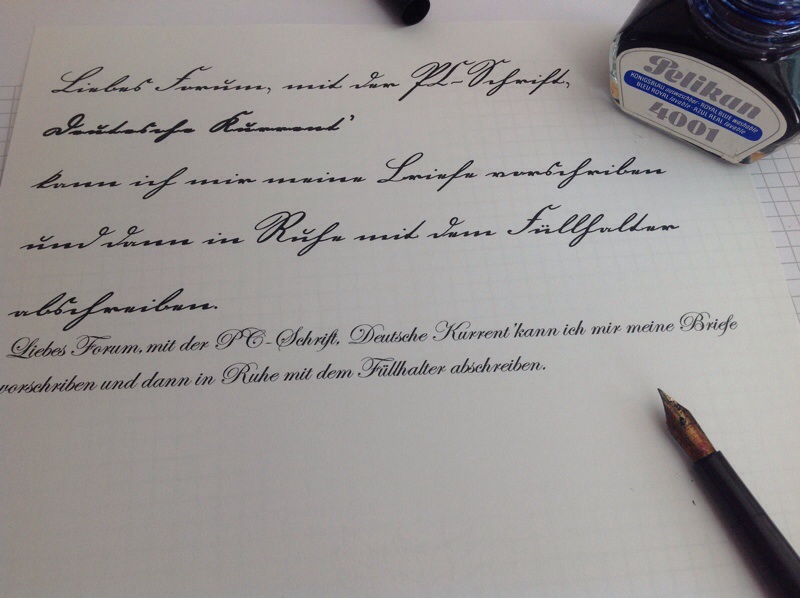 Liebes Forum, mit der PC-Schrift,
Deutsche Kurrent'
kann ich mir meine Briefe vorschriben
und dann in Ruhe mit dem Füllhalter
abschreiben.
Liebes Forum, mit der PC-Schrift, Deutsche Kurrent'kann ich mir meine Briefe
vorschriben und dann in Ruhe mit dem Füllhalter abschreiben.
Pelikan
KÖNIGSBLAU auswaschbar · ROYAL BLUE washable
BLEU ROYAL lavable · AZUL REAL lavable
4001